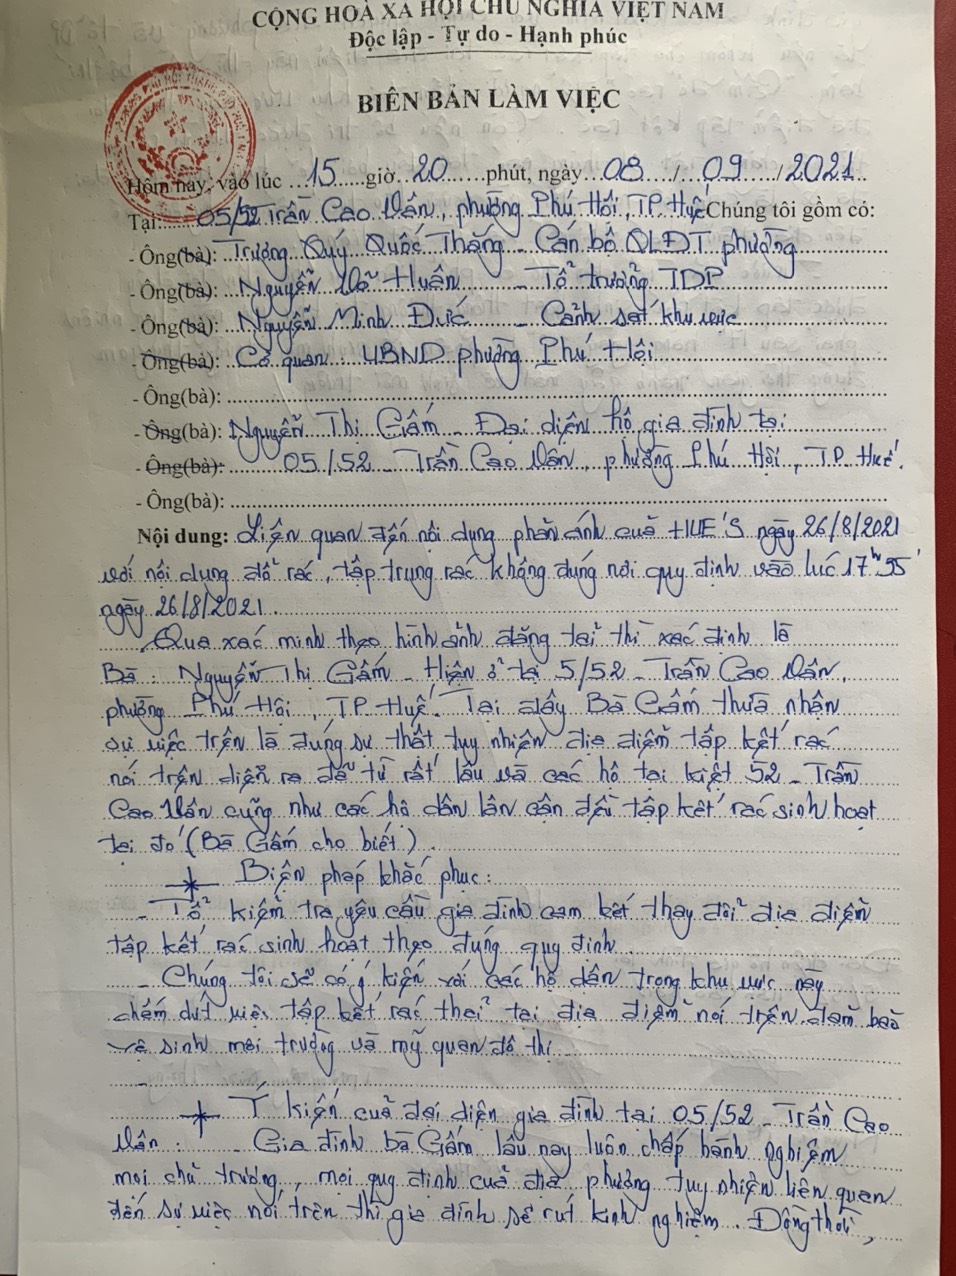 CỘNG HOÀ XÃ HỘI CHỦ NGHĨA VIỆT NAM
Độc lập - Tự do - Hạnh phúc
BIÊN BẢN LÀM VIỆC
Hôm nay, vào lúc ...15......giờ...20.......phút, ngày...08..../....09..../2021..
Tại:......05/52 Trần Cao Vân, phường Phú Hội, TP Huế Chúng tôi gồm có:
- Ông(bà): Trương Quý Quốc Thắng - Cán bộ QLĐT phường
- Ông(bà): Nguyễn Võ Huấn - Tổ trưởng TDP
- Ông(bà): Nguyễn Minh Đức - Cảnh sát khu vực
- Ông(bà): Cơ quan : UBND phường Phú Hội
- Ông(bà):
- Ông(bà): Nguyễn Thị Gấm - Đại diện hộ gia đình tại
- Ông(bà): 05/52 - Trần Cao Vân, phường Phú Hội, TP. Huế.
- Ông(bà):
Nội dung: Liên quan đến nội dung phản ánh của HUE'S ngày 26/8/2021
với nội dung đổ rác, tập trung rác không đúng nơi quy định vào lúc 17h55'
ngày 26/8/2021.
Qua xác minh theo hình ảnh đăng tải thì xác định là
Bà : Nguyễn Thị Gấm - Hiện ở tại 5/52 - Trần Cao Vân,
phường Phú Hội, TP. Huế. Tại đây Bà Gấm thừa nhận
sự việc trên là đúng sự thật tuy nhiên địa điểm tập kết rác
nói trên diễn ra đã từ rất lâu và các hộ tại kiệt 52 - Trần
Cao Vân cũng như các hộ dân lân cận đều tập kết rác sinh hoạt
tại đó (Bà Gấm cho biết).
* Biện pháp khắc phục:
- Tổ kiểm tra yêu cầu gia đình cam kết thay đổi địa điểm
tập kết rác sinh hoạt theo đúng quy định
- Chúng tôi sẽ có ý kiến với các hộ dân trong khu vực này
chấm dứt việc tập kết rác thải tại địa điểm nói trên đảm bảo
vệ sinh môi trường và mỹ quan đô thị
* Ý kiến của đại diện gia đình tại 05/52 - Trần Cao
Vân : - Gia đình bà Gấm lâu nay luôn chấp hành nghiêm
mọi chủ trương, mọi quy định của địa phương tuy nhiên liên quan
đến sự việc nói trên thì gia đình sẽ rút kinh nghiệm. Đồng thời,